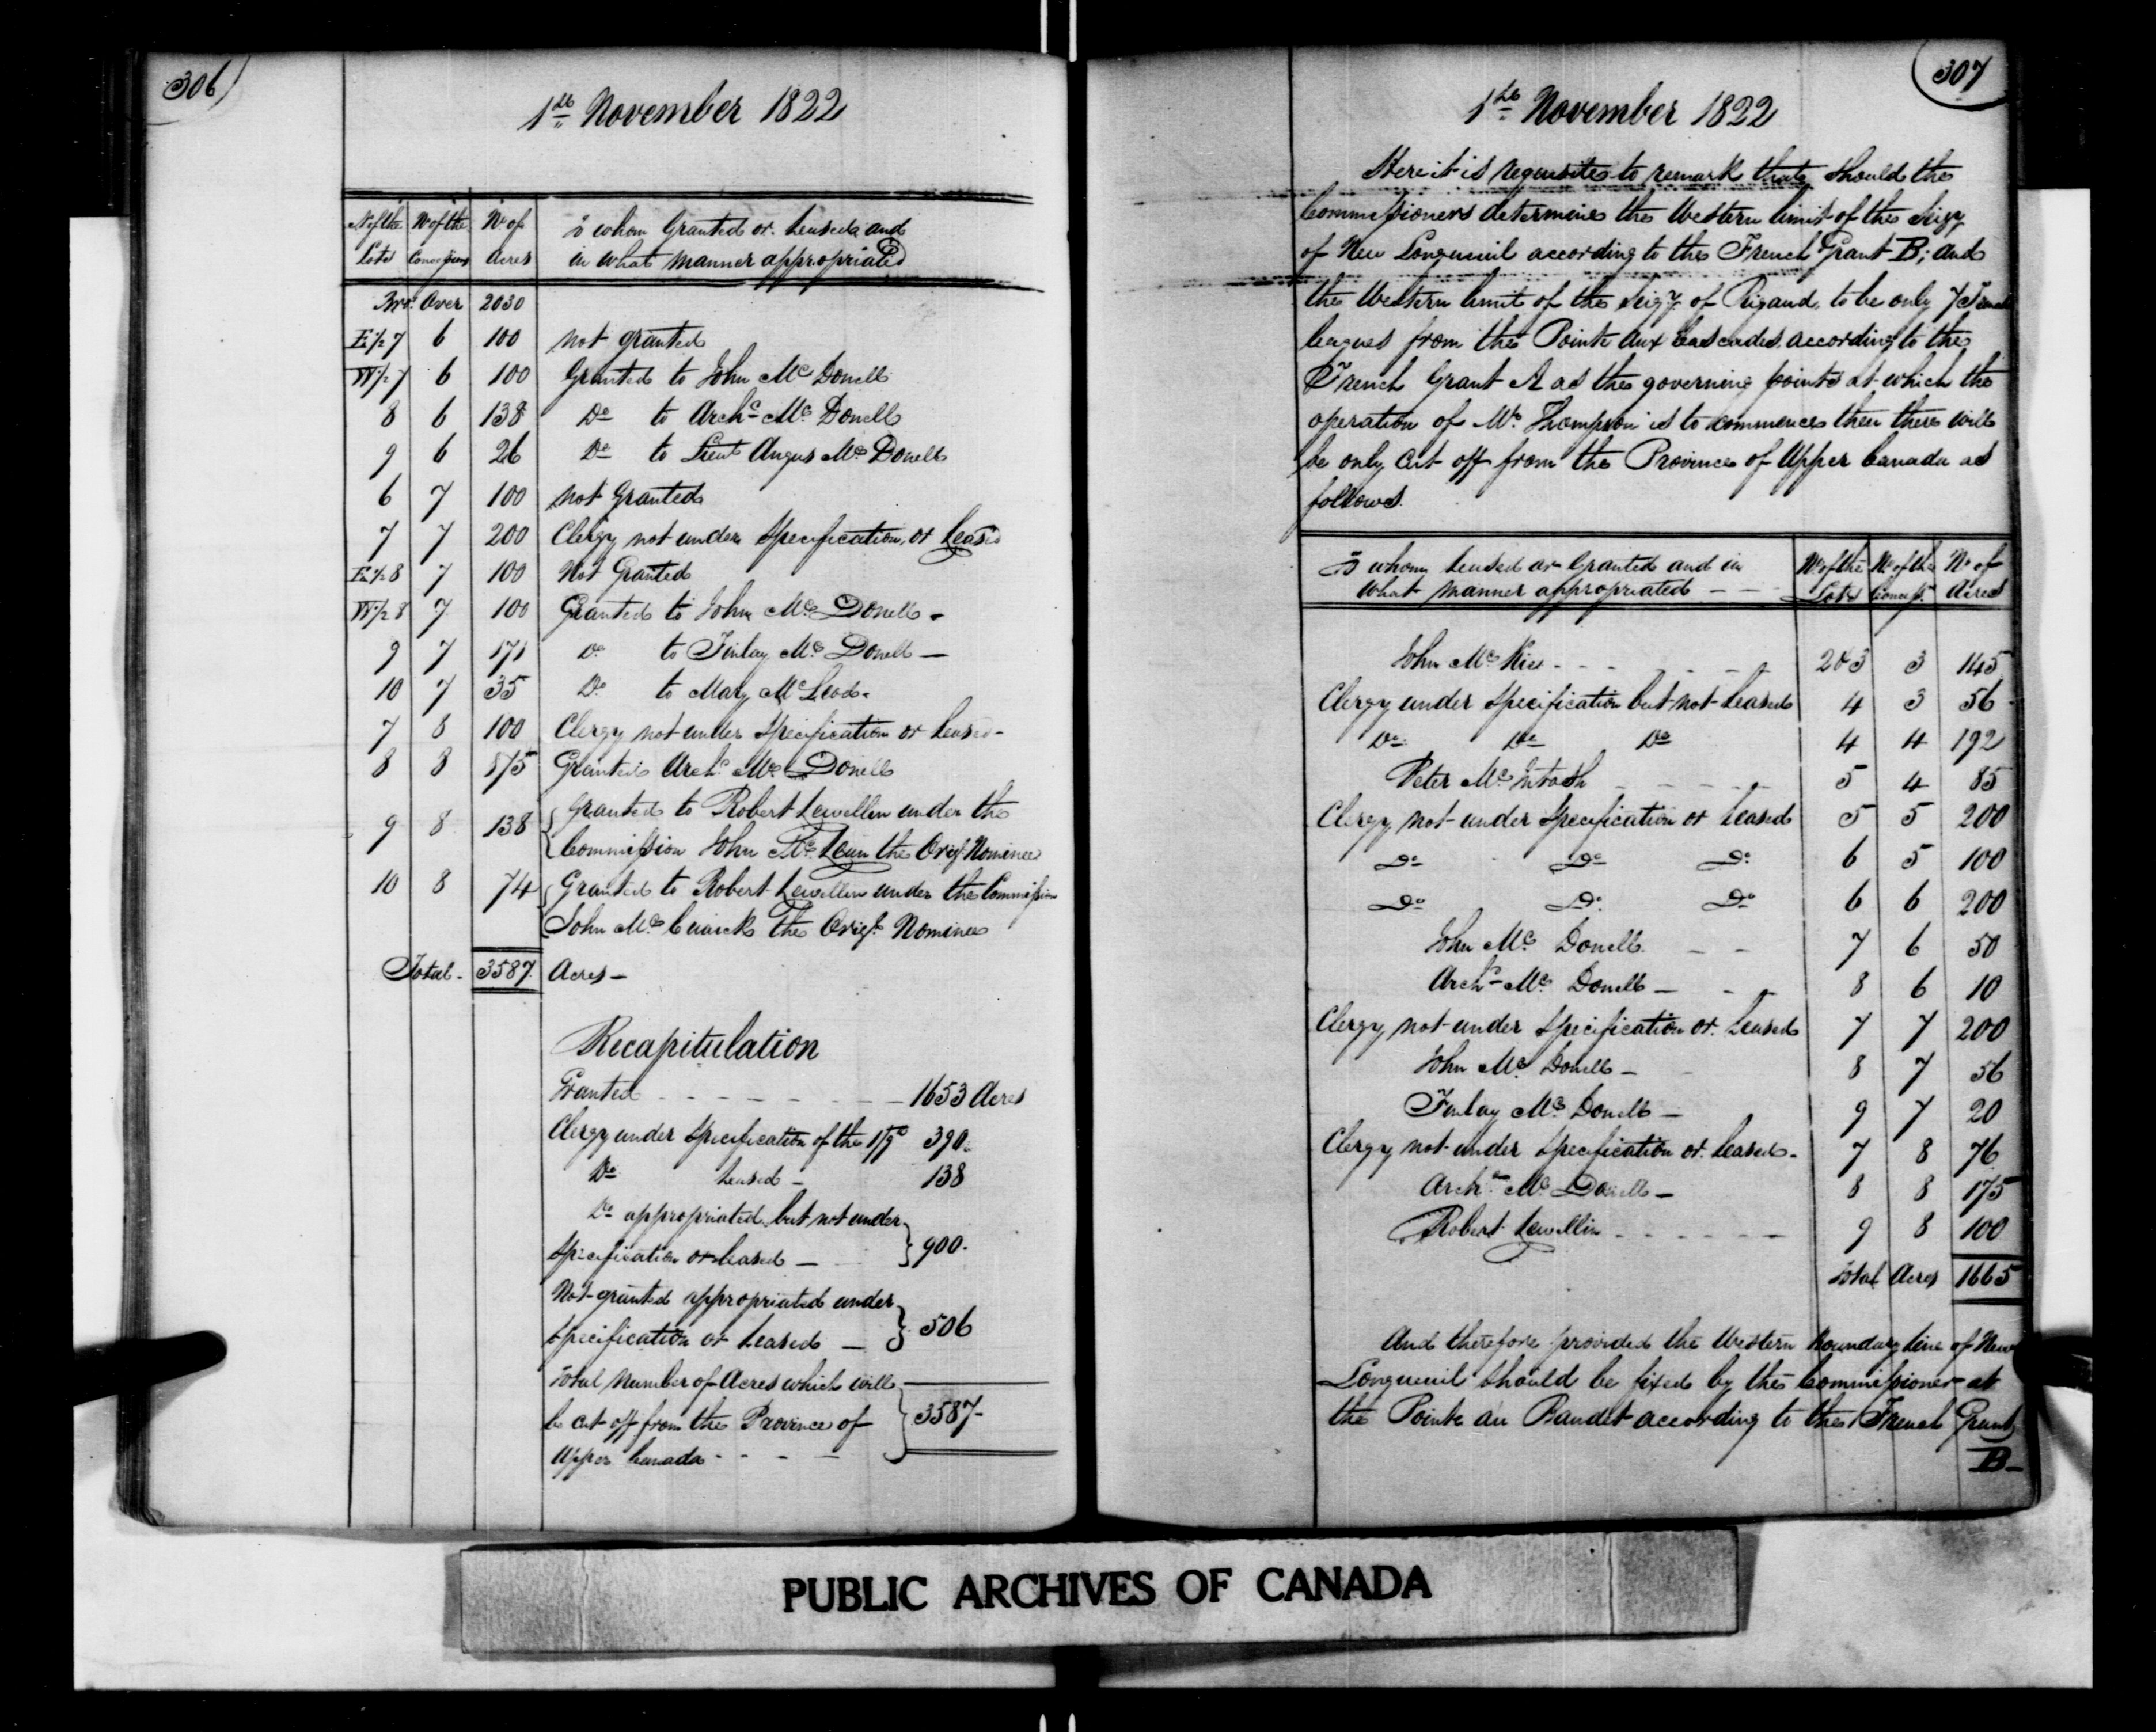 306
1st November 1822
No of the Lots | No of the Concessions | No of Acres | To whom Granted or Leased and in what manner appropriated
Bro. Over 2030
E 1/2 7 6 100 not granted
W 1/2 7 6 100 Granted to John Mc Donell
8 6 138 Do to Archd Mc Donell
9 6 26 Do to Lieut Angus Mc Donell
6 7 100 not Granted
7 7 200 Clergy not under Specification, or Leased
E 1/2 8 7 100 Not Granted
W 1/2 8 7 100 Granted to John Mc Donell -
9 7 171 Do to Finlay Mc Donell —
10 7 35 Do to Mary Mc Leod -
7 8 100 Clergy not under Specification or Leased -
8 8 375 Granted Archd Mc Donell
9 8 138 Granted to Robert Lewellin under the
Commission John Mc Lean the Origl Nominee
10 8 74 Granted to Robert Lewellin under the Commission
John Mc Cuaick The Origl Nominee
Total - 3587 Acres —
Recapitulation
Granted - - - - - - - 1653 Acres
Clergy under Specification of the 390
Do Leased - 138
Do appropriated but not under
Specification or leased — 900 -
Not granted appropriated under
Specification or Leased — 506
Total number of Acres which will
be cut off from the Province of 3587 -
Upper Canada - - - -
307
1st November 1822
Here it is requisite to remark that should the
Commissioners determine the Western limit of the Seigy
of New Longueuil according to the French Grant B; and
the Western limit of the Seigy of Rigaud, to be only 7 French
leagues from the Pointe aux Cascades according to the
French Grant A as the governing points at which the
operation of Mr Thompson is to commence then there will
be only cut off from the Province of Upper Canada as
follows.
To whom leased or Granted and in what manner appropriated - - | No of the Lots | No of the Concessn | No of Acres
John Mc Kie - - - - 2 & 3 3 145
Clergy under Specification but not Leased 4 3 56
Do Do Do 4 4 192
Peter Mc Intosh - - - - 5 4 85
Clergy not under Specification or Leased 5 5 200
Do Do Do 6 5 100
Do Do Do 6 6 200
John Mc Donell - - 7 6 50
Archd Mc Donell — - - 8 6 10
Clergy not under Specification or Leased 7 7 200
John Mc Donell — 8 7 56
Finlay Mc Donell — 9 7 20
Clergy not under Specification or Leased - 7 8 76
Archd Mc Donell — 8 8 175
Robert Lewellin - - - - - - 9 8 100
Total Acres 1665
And therefore provided the Western boundary line of New
Longueuil should be fixed by the Commissioner at
the Pointe au Baudet according to the French Grant
B -
PUBLIC ARCHIVES OF CANADA